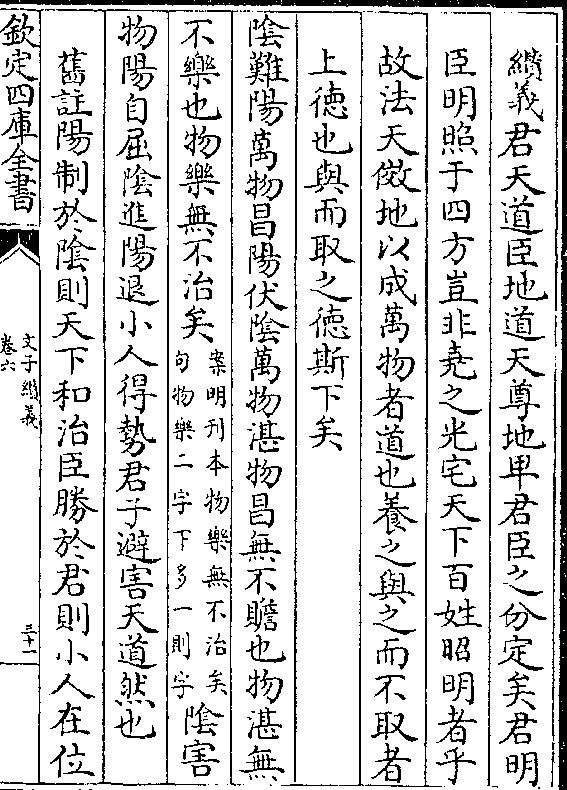 纘義君天道臣地道天尊地卑君臣之分定矣君明
臣明照于四方豈非堯之光宅天下百姓昭明者乎
故法天儆地以成萬物者道也養之與之而不取者
上徳也與而取之德斯下矣
陰難陽萬物昌陽伏陰萬物湛物昌無不贍也物湛無
不樂也物樂無不治矣案明刋本物樂無不治矣句物樂二字下多一則字陰害
物陽自屈陰進陽退小人得勢君子避害天道然也
舊註陽制於陰則天下和治臣勝於君則小人在位
欽定四庫全書
文子纘義
卷六
三十一